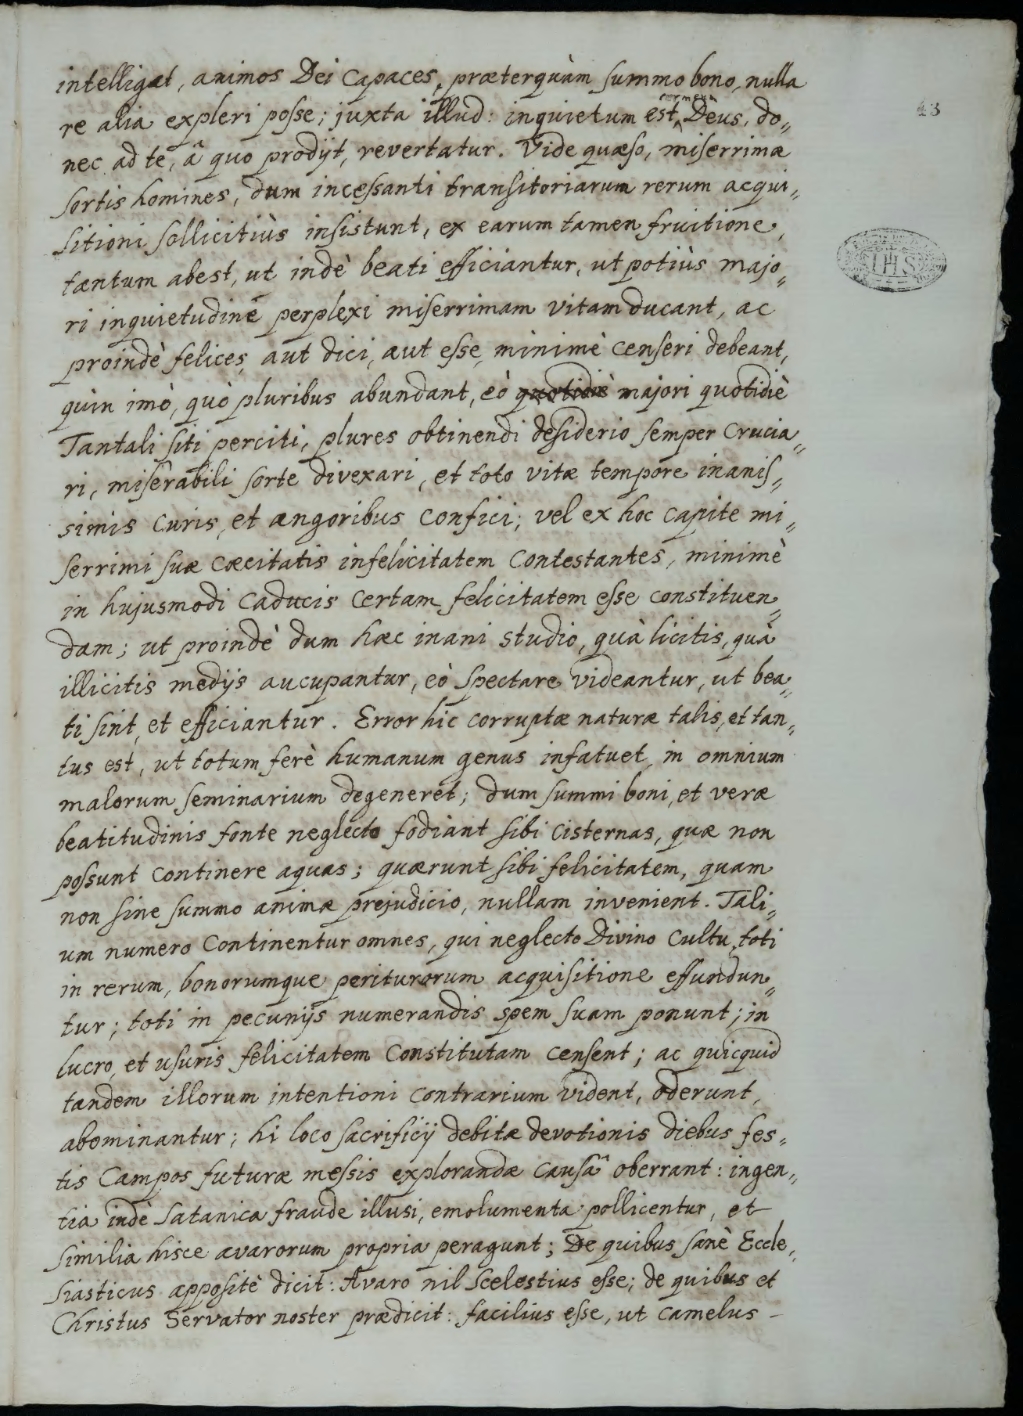 intelligat, animos Dei capaces, præterquàm summo bono, nulla
re alia expleri posse; juxta illud: inquietum est, Deus, do„
nec ad te, â quo prodijt, revertatur. Vide quæso, miserrimæ
sortis homines, dum incessanti transitoriarum rerum acqui„
sitioni sollicitiùs insistunt, ex earum tamen fruitione,
tantum abest, ut indè beati efficiantur, ut potiùs majo„
ri inquietudine perplexi miserrimam vitam ducant, ac
proindè felices, aut dici, aut esse, minimè censeri debeant,
quin imò, quò pluribus abundant, eò quotidiè majori quotidiè
Tantali siti perciti, plures obtinendi desiderio semper crucia„
ri, miserabili sorte divexari, et toto vitæ tempore inanis„
simis curis, et angoribus confici; vel ex hoc capite mi„
serrimi suæ cœcitatis infelicitatem contestantes, minimè
in hujusmodi caducis certam felicitatem esse constituen„
dam; ut proindè dum hæc inani studio, quà licitis, quà
illicitis medijs aucupantur, eò spectare videantur, ut bea„
ti sint, et efficiantur. Error hic corruptæ naturæ talis, et tan„
tus est, ut totum ferè humanum genus infatuet, in omnium
malorum seminarium degeneret; dum summi boni, et veræ
beatitudinis fonte neglecto fodiant sibi cisternas, quæ non
possunt continere aquas; quærunt sibi felicitatem, quam
non sine summo animæ prejudicio, nullam invenient. Tali„
um numero continentur omnes, qui neglecto Divino cultu, toti
in rerum, bonorumque periturorum acquisitione effundun„
tur; toti in pecunijs numerandis spem suam ponunt; in
lucro, et usuris felicitatem constitutam censent; ac quicquid
tandem illorum intentioni contrarium vident, oderunt,
abominantur; hi loco sacrificij debitæ devotionis diebus fes„
tis campos futuræ messis explorandæ causâ oberrant: ingen„
tia indè satanica fraude illusi, emolumenta pollicentur, et
similia hisce avarorum propria peragunt; De quibus sanè Eccle„
siasticus appositè dicit: Avaro nil scelestius esse; de quibus et
Christus Servator noster prædicit: facilius esse, ut camelus -
43
IHS